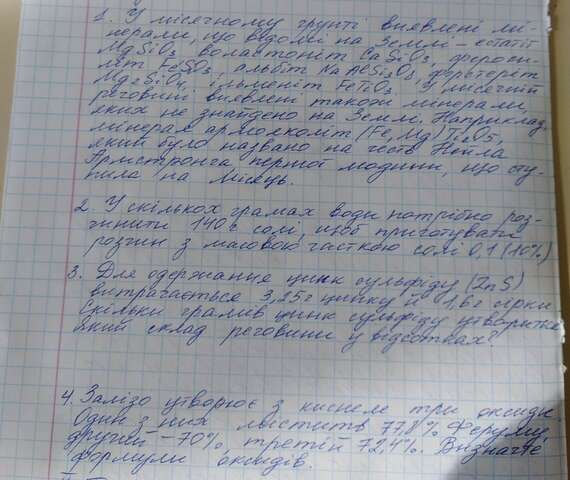 1. У місячному грунті виявлені мі-
нерали, що відомі на Землі – естатіт
MgSiO3 воластоніт CaSiO3, фероси-
літ FeSO3, альбіт NaAlSi3O8, форстеріт
Mg2SiO4, ільменіт FeTiO3. У місячній
речовині виявлені також мінерали,
яких не знайдено на Землі. Наприклад
мінерал армолколіт (Fe, Mg)Ti2O5,
який було названо на честь Нейла
Армстронга першої людини, що сту-
пила на Місяць.
2. У скількох грамах води потрібно роз-
чинити 140г солі, щоб приготувати
розчин з масовою часткою солі 0,1 (10%)
3. Для одержання цинк сульфіду (ZnS)
витрачається 3,25г цинку й 1,6г сірки
Скільки грамів цинк сульфіду утвориться
Який склад речовини у відсотках?
4. Залізо утворює з киснем три оксиди.
Один з них містить 77,8% Феруму,
другий – 70%, третій 72,4%. Визначте
формули оксидів.